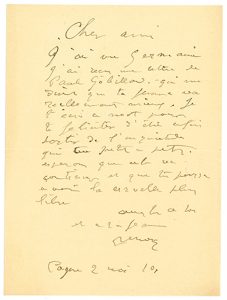 Cher ami
J'ai vu Germaine
j'ai reçu une lettre de
Paul Gobillard qui me
dit que ta femme va
réellement mieux. Je
t'écris un mot pour
te féliciter d'être enfin
sorti de l'inquiétude
que petit à petit
espérons que cela va
continuer et que tu pourras
avoir la cervelle plus
libre
amitiés
et à ta femme
Renoir
Cagnes 2 mai 10